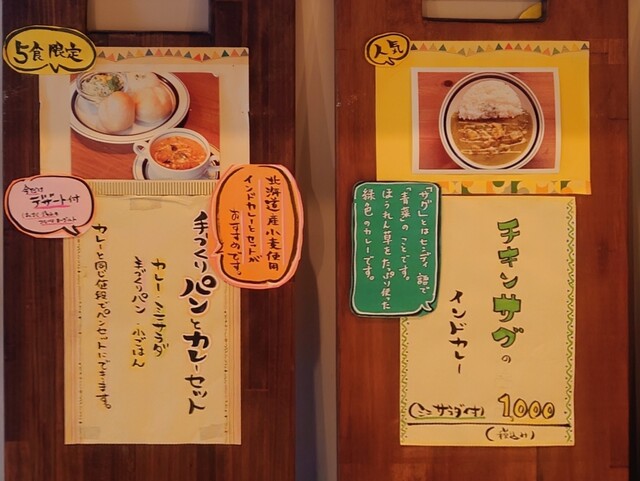 5食限定
今だけ
デザート付
北海道産小麦使用
インドカレーとセットが
おすすめです。
手づくりパンとカレーセット
カレー・ミニサラダ
手づくりパン・小ごはん
カレーと同じ値段でパンセットにできます。
人気
「サグ」とはヒンディ語で
「青菜」のことです。
ほうれん草をたっぷり使った
緑色のカレーです。
チキンサグの
インドカレー
(ミニサラダ付) 1000
(税込み)